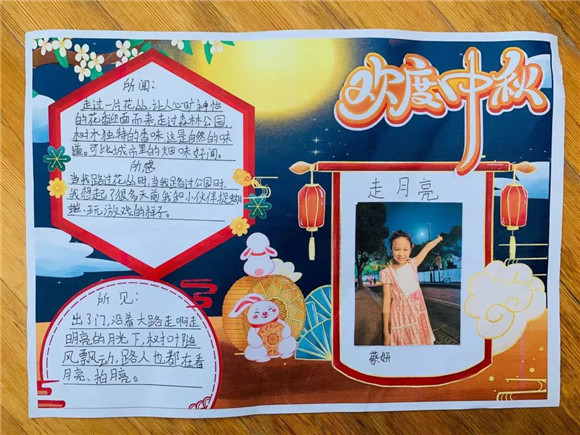 欢度中秋
所闻：
走过一片花丛，让人心旷神怡
的花香迎面而来，走过森林公园，
树木独特的香味，这是自然的味
道。可比城市里的烟味好闻。
所感
当我路过花丛时，当我路过公园时，
我想起了很多天前我和小伙伴捉蝴
蝶、玩游戏的样子。
走月亮
蔡妍
所见：
出了门，沿着大路走啊走
明亮的月光下，树叶随
风飘动，路人也都在看
月亮、拍月亮。